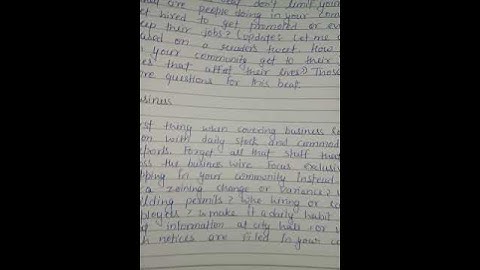 beat don't limit your
are people doing in your com
get hired to get promoted or ev
eep their jobs? (update: Let me
ased on a readers tweet. How
your community get to their
es that affet their lives?) Those
ore questions for this beat.
usiness
rst thing when covering business
on with daily stock and commod
eports. Forget all that stuff that
oss the busines wire. Focus exclusiv
pping in your community Instead.
a zoining change or variance?
ilding permits? Who hiring or
ployees? make it a daily habit
information at city hall or
h notices are filed in your co